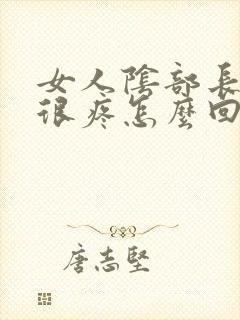 女人陰部長
很疼怎麼回
唐志堅